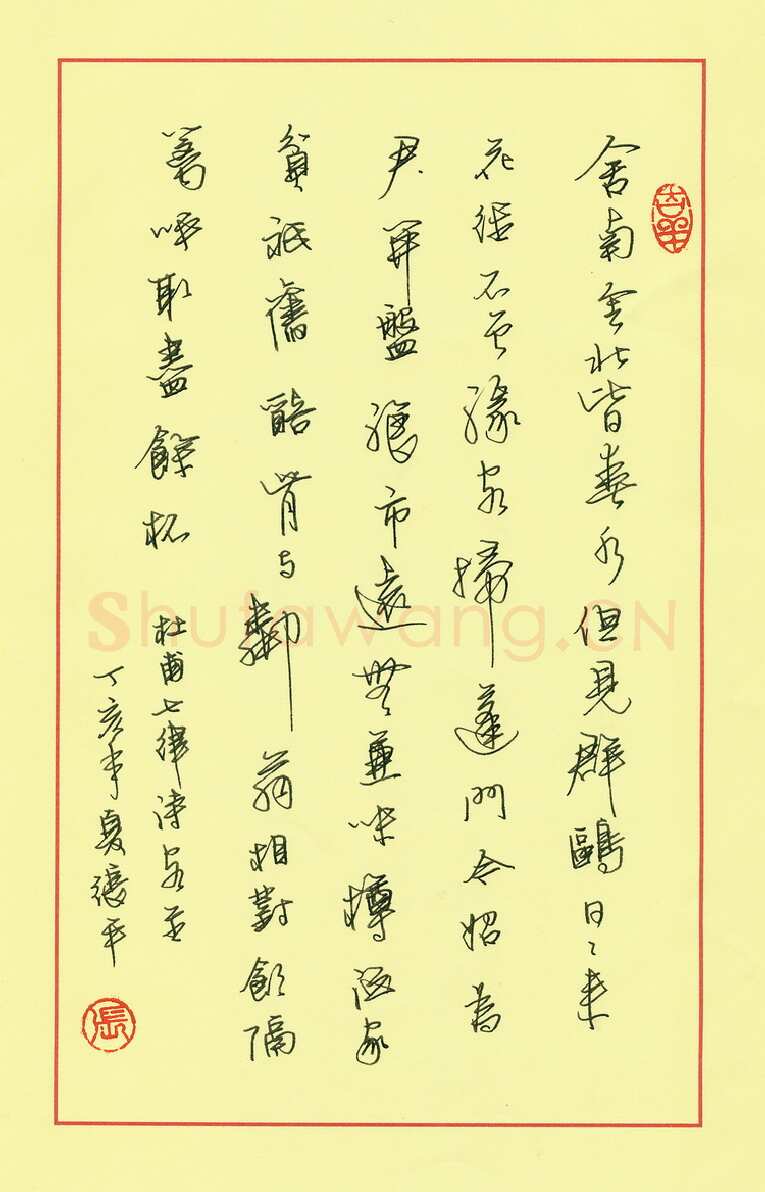 舍南舍北皆春水但見群鷗日〻来
花徑不曾緣客掃蓬門今始為
君開盤飧市遠無兼味樽酒家
貧祇舊醅肯与鄰翁相對飲隔
籬呼取盡餘杯
杜甫七律诗客至
丁亥年夏張平
張
Shufawang.CN